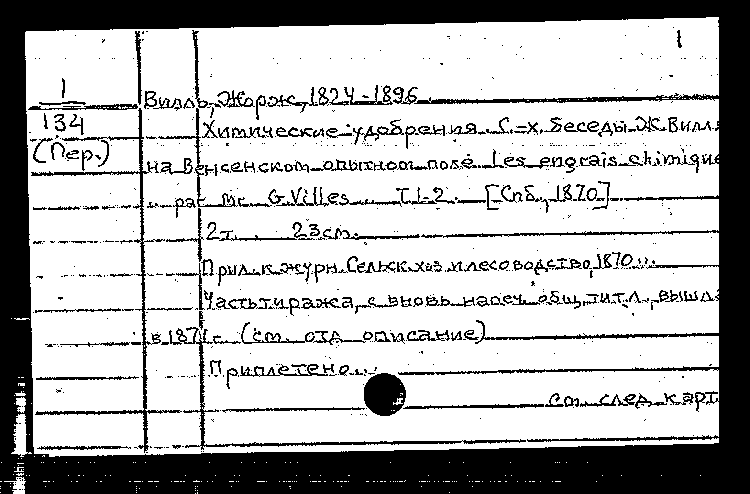 1
1
134
(Пер.)
Вилль, Жорж, 1824-1896.
Химические удобрения. С.-х. беседы Ж. Вилля
на Венсенском опытном поле. Les engrais chimique
.. par Mr. G. Villes... T. 1-2. [Спб., 1870]
2т. 23см.
Прил. к журн. Сельск. хоз. и лесоводство, 1870...
Часть тиража, с вновь напеч. общ. тит. л., вышла
в 1871г. (см. отд. описание)
Приплетено...
См. след. карт